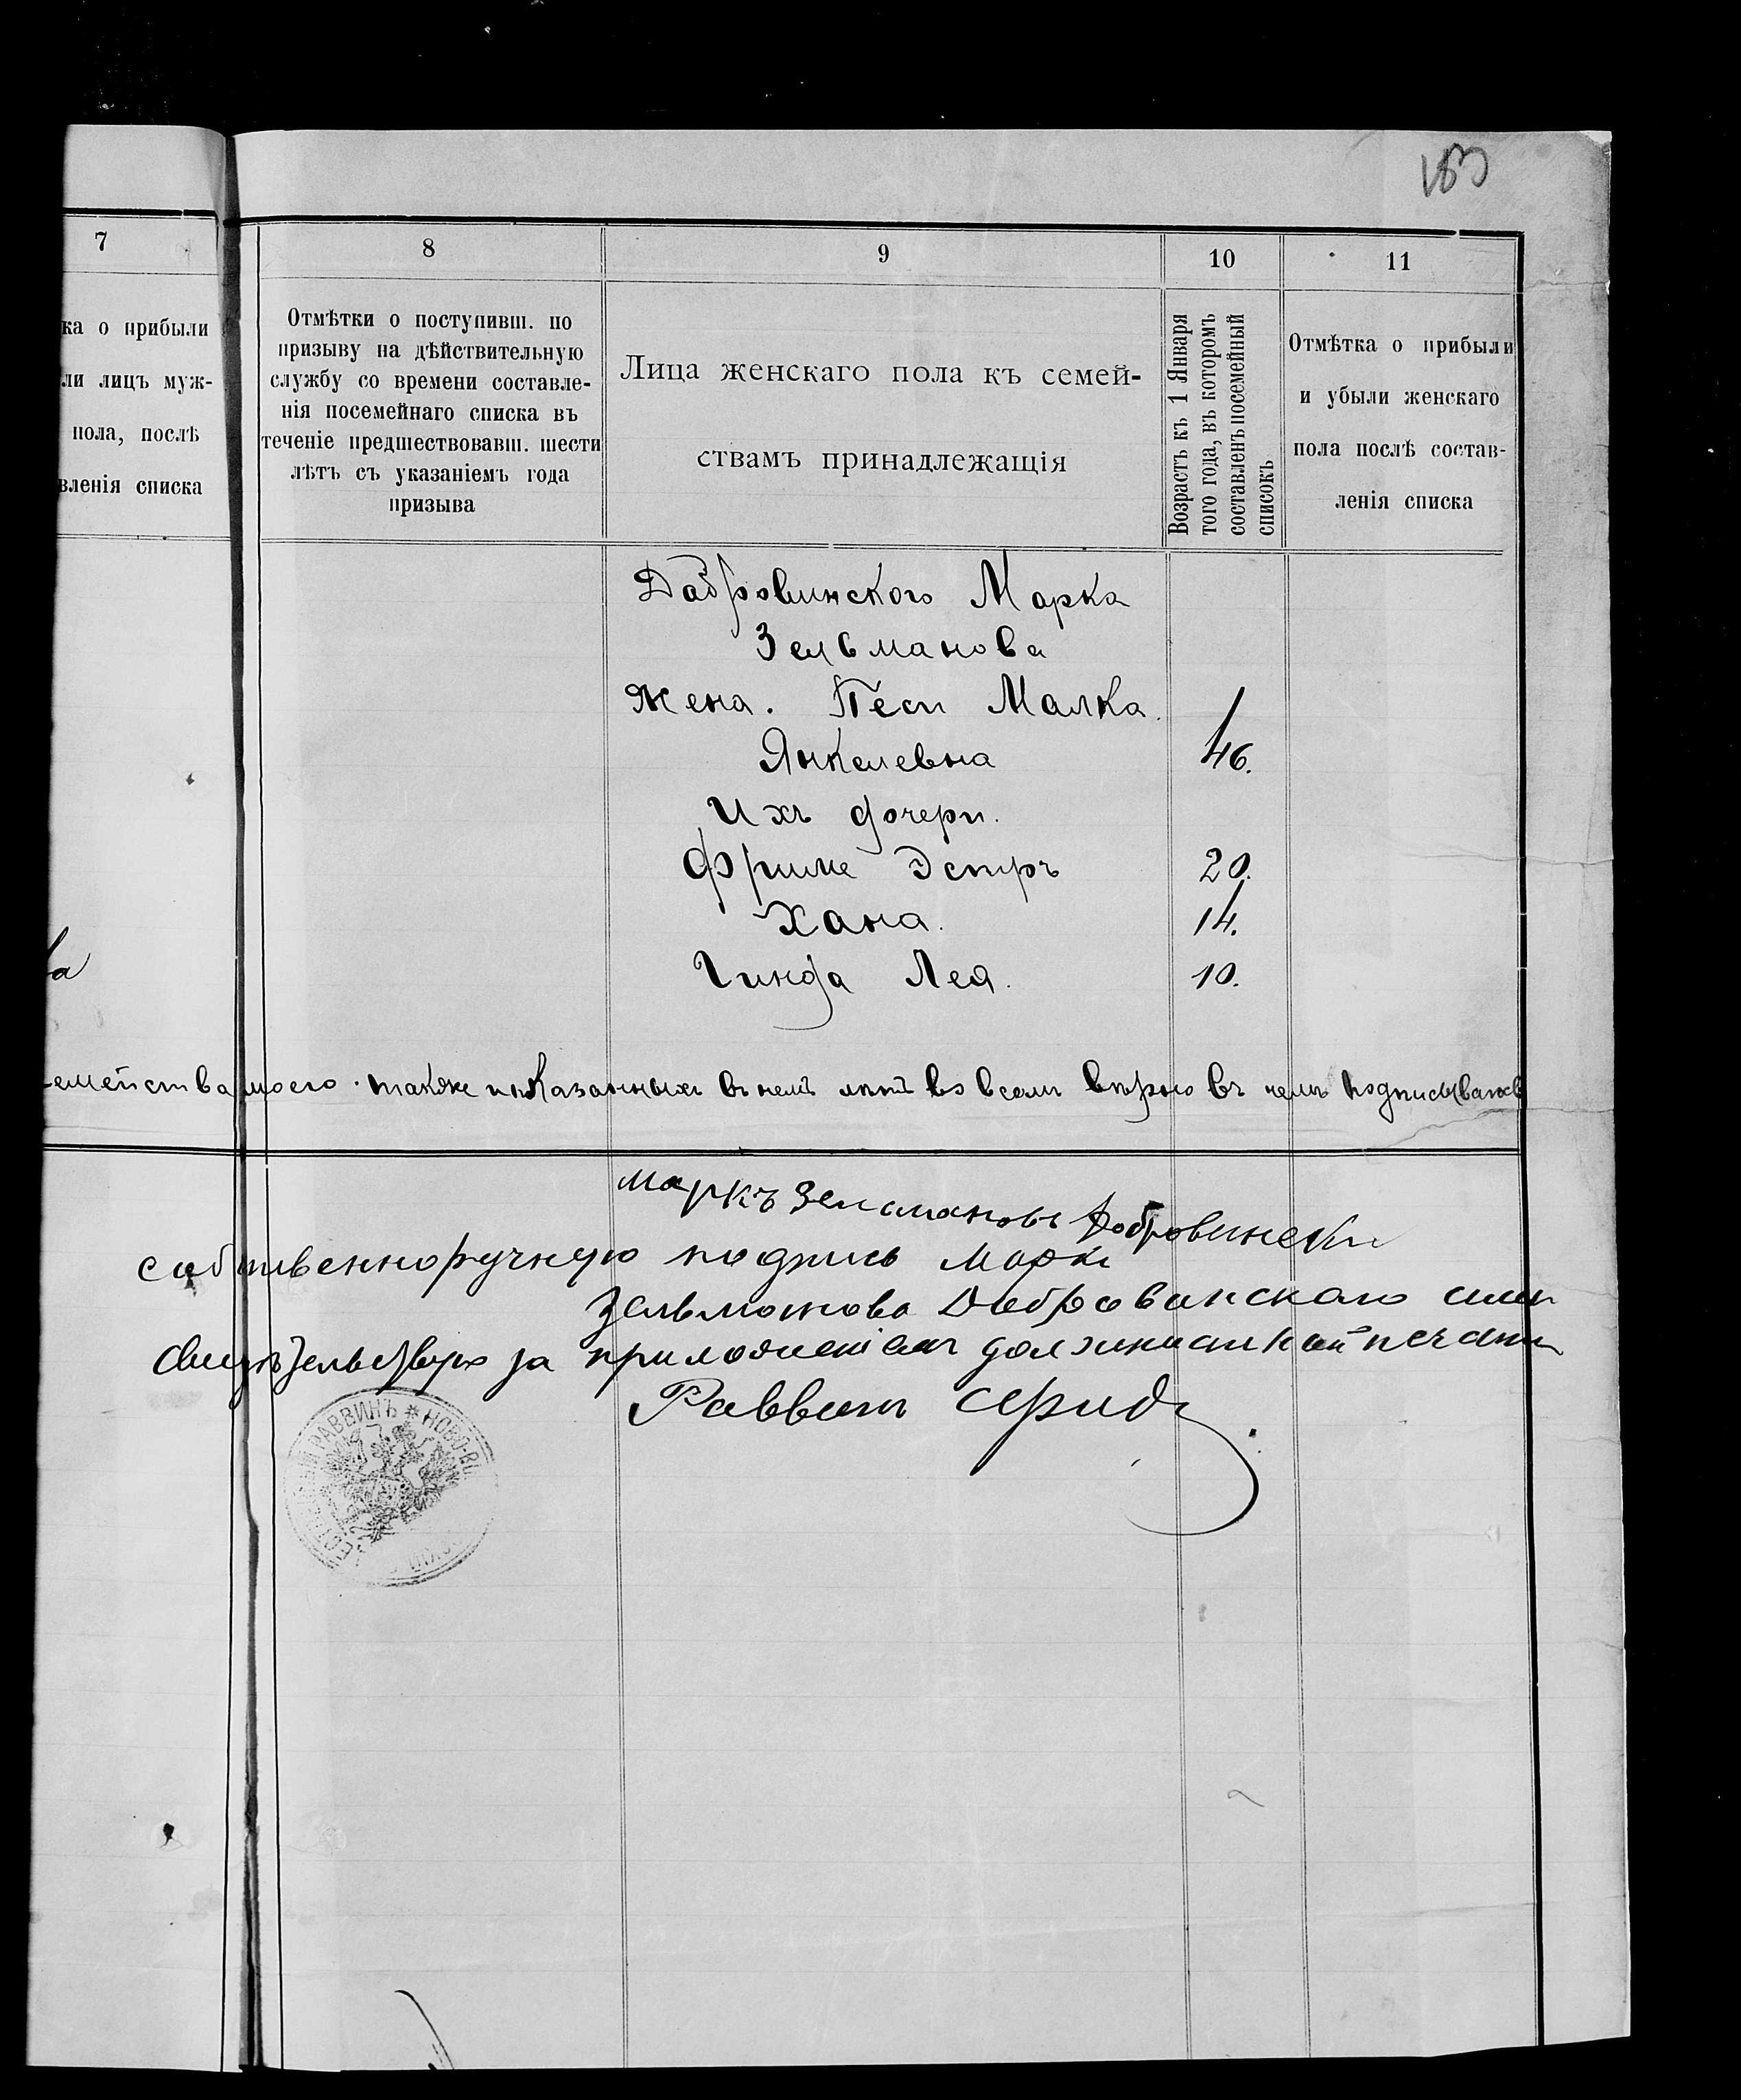 183
7
8
9
10
11
ка о прибыли
ли лицъ муж-
пола, послѣ
вленія списка
Отмѣтки о поступивш. по
призыву на дѣйствительную
службу со времени составле-
нія посемейнаго списка въ
теченіе предшествовавш. шести
лѣтъ съ указаніемъ года
призыва
Лица женскаго пола къ семей-
ствамъ принадлежащія
Возрастъ къ 1 Января
того года, въ которомъ
составленъ посемейный
списокъ
Отмѣтка о прибыли
и убыли женскаго
пола послѣ состав-
ленія списка
Добровинского Марка
Зельманова
жена. Песи Малка
Янкелевна 46.
Ихъ дочери.
Фриме Эстръ 20.
Хана. 14.
Гинда Лея. 10.
ва
емейства моего также показанныхъ въ немъ лѣтъ во всемъ вѣрно въ чемъ подписываюсь
Маркъ Зельмановъ Добровински
собственноручную подпись Марка
Зельманова Добровинскаго симъ
за приложеніемъ печати
Раввинъ
РАВВИНЪ * НОВО-